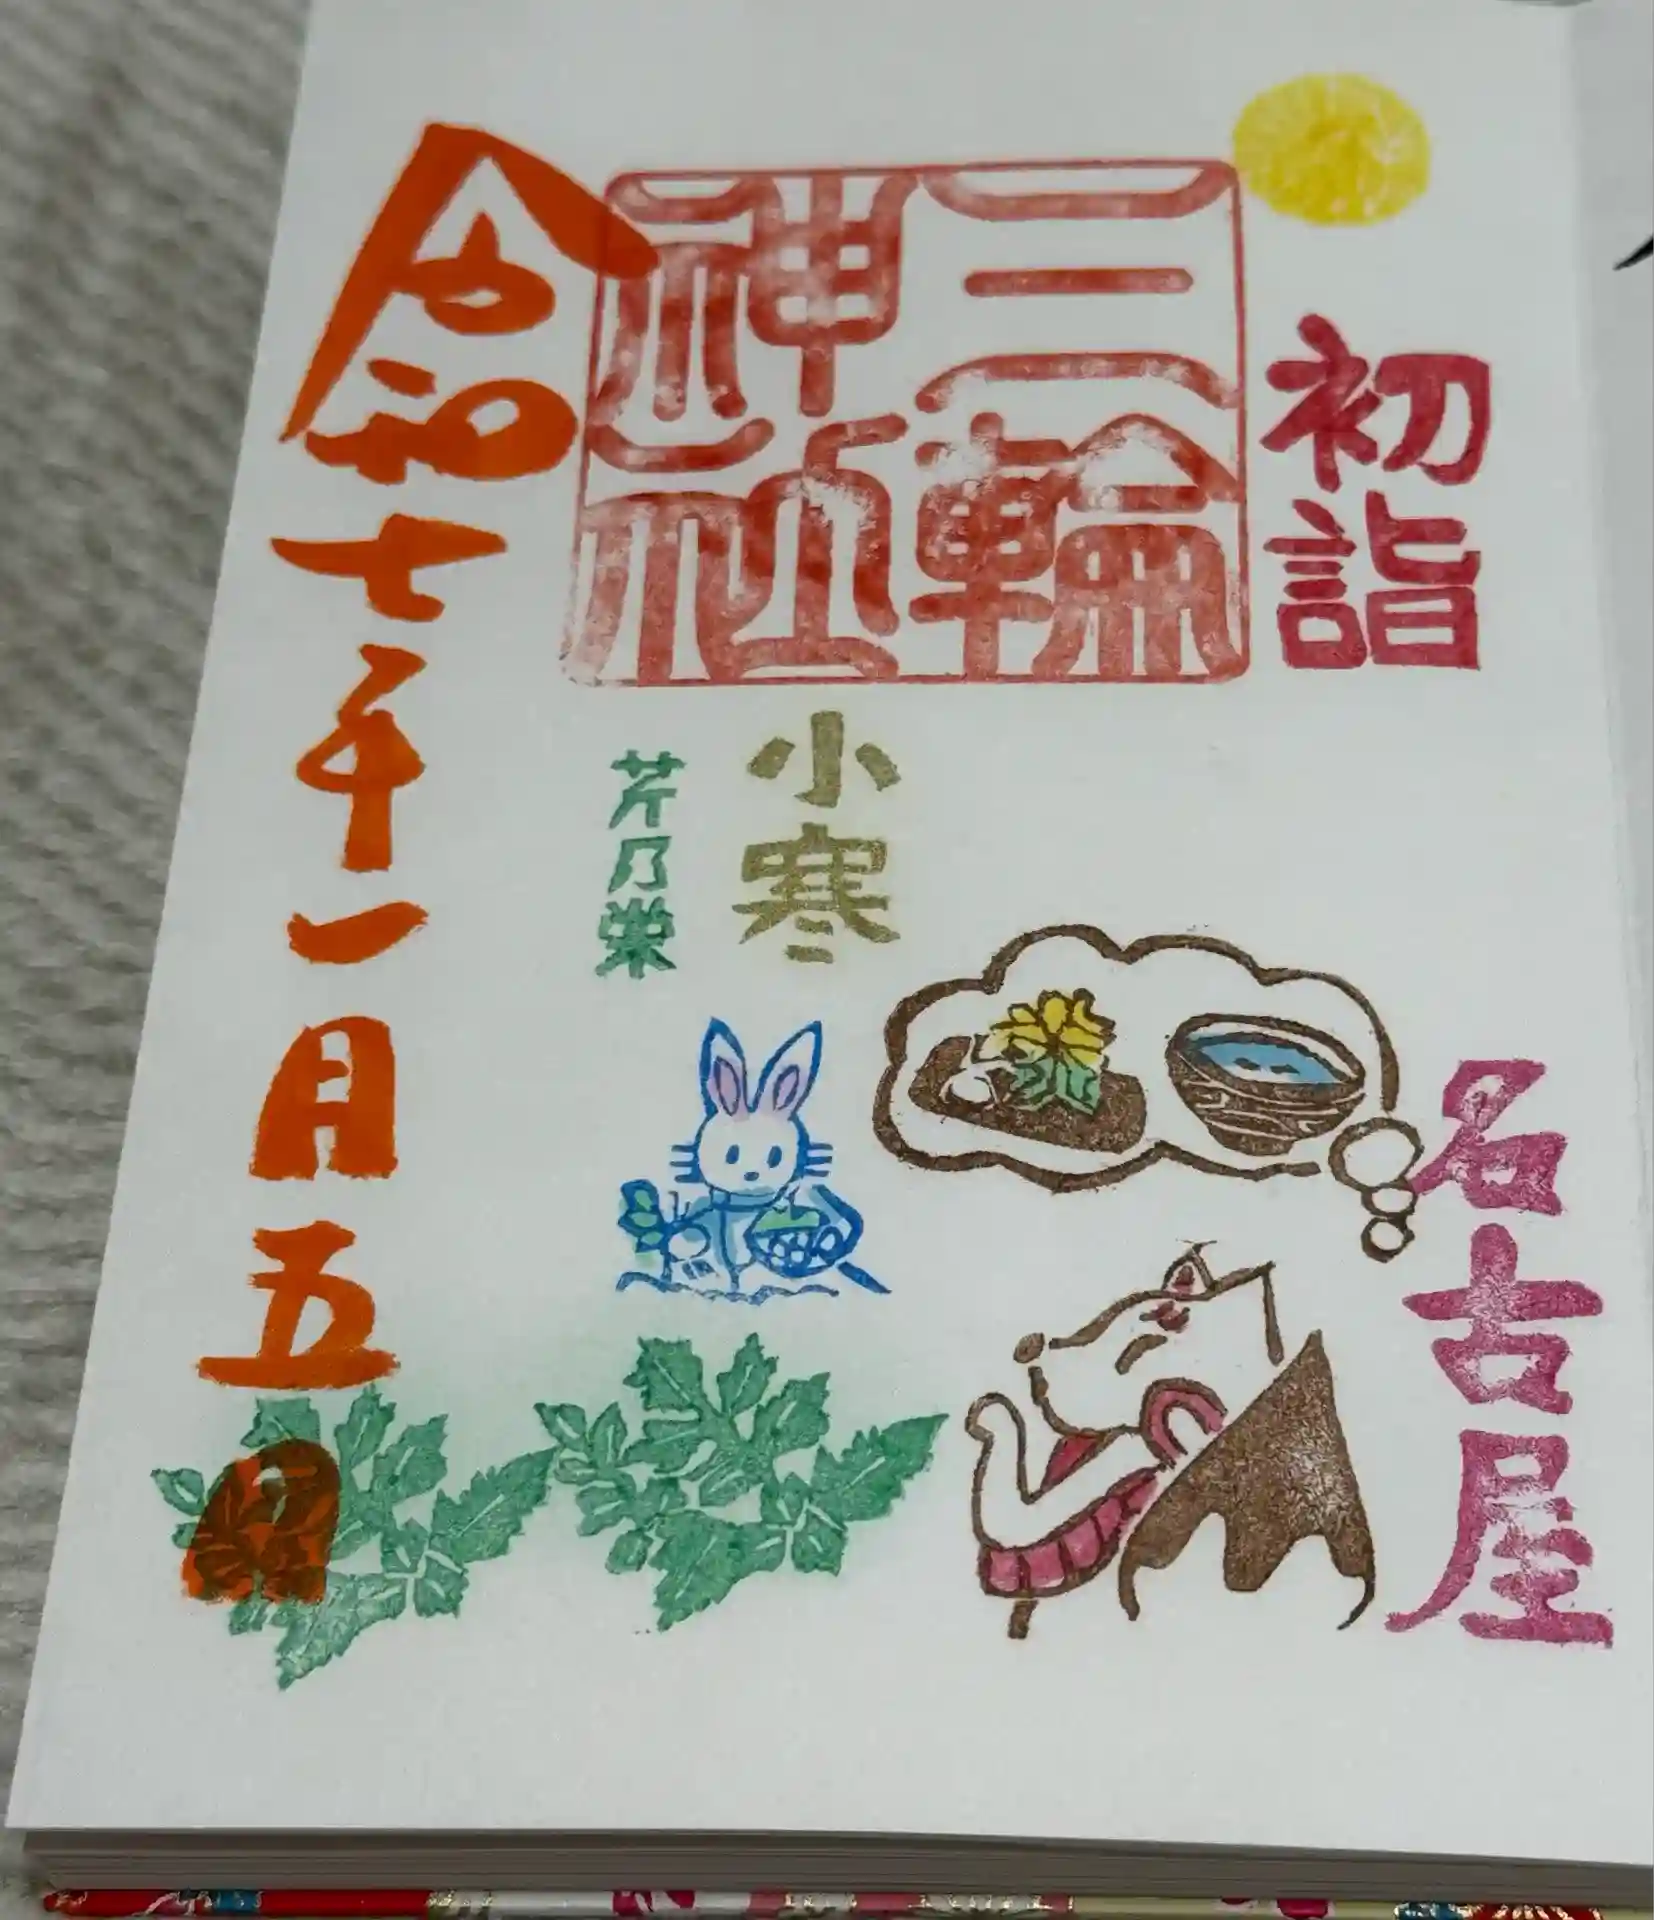 初詣
三輪
神社
名古屋
小寒
芹乃栄
令和七年一月五日